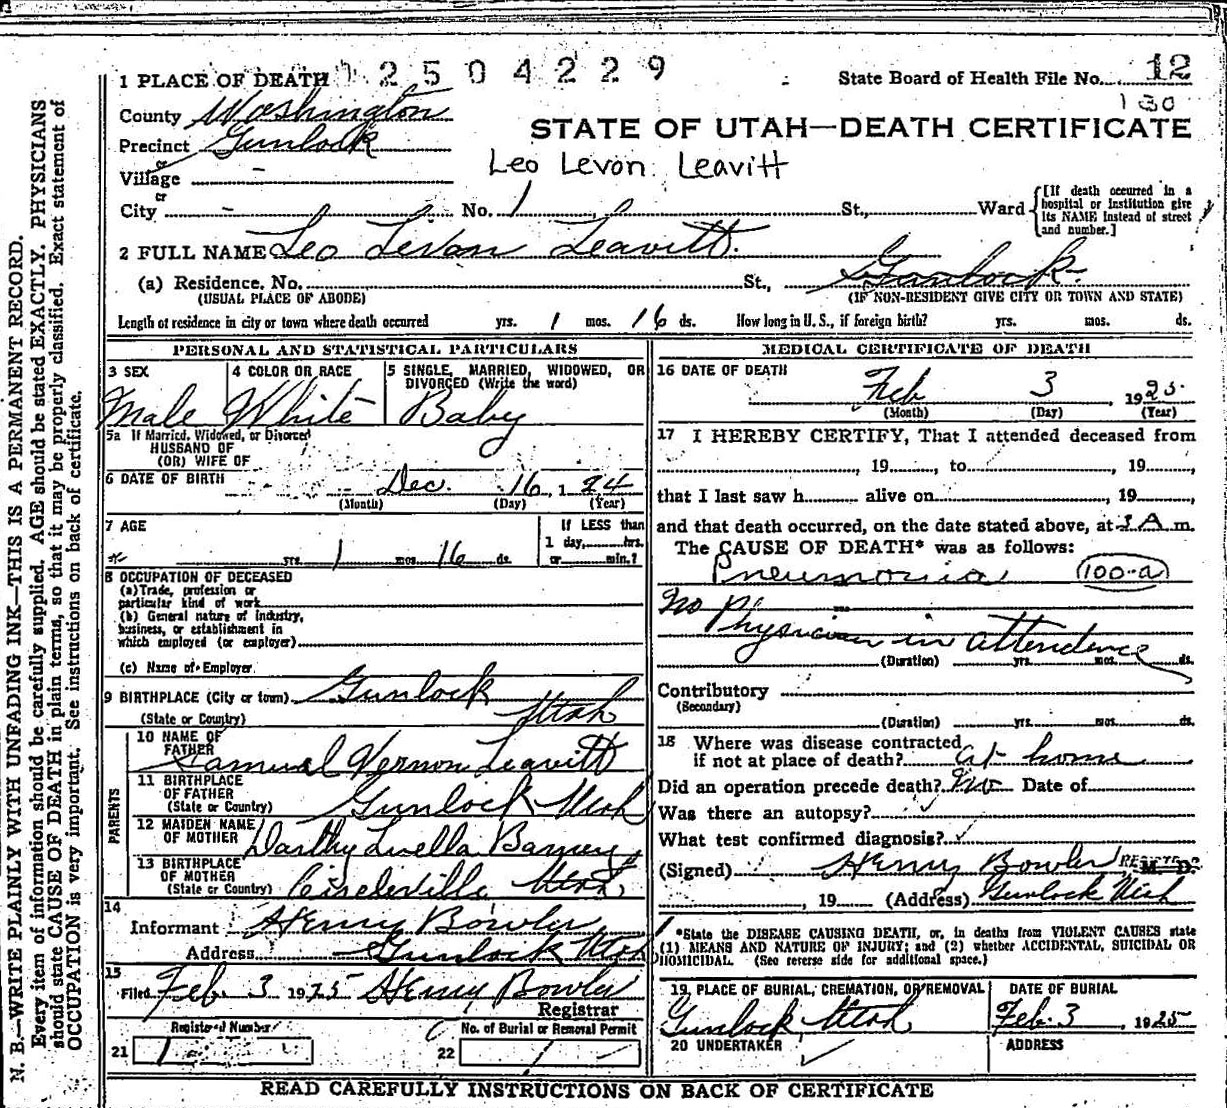 N. B.—WRITE PLAINLY WITH UNFADING INK—THIS IS A PERMANENT RECORD.
Every item of information should be carefully supplied. AGE should be stated EXACTLY. PHYSICIANS
should state CAUSE OF DEATH in plain terms, so that it may be properly classified. Exact statement of
OCCUPATION is very important. See instructions on back of certificate.
1 PLACE OF DEATH 2504229 State Board of Health File No. 12
130
County Washington
STATE OF UTAH—DEATH CERTIFICATE
Precinct Gunlock
Leo Levon Leavitt
or
Village –
or
City – No. 1 St., Ward [If death occurred in a hospital or institution give its NAME instead of street and number.]
2 FULL NAME Leo LeVon Leavitt.
(a) Residence. No. St., Gunlock.
(USUAL PLACE OF ABODE) (IF NON-RESIDENT GIVE CITY OR TOWN AND STATE)
Length of residence in city or town where death occurred yrs. 1 mos. 16 ds. How long in U. S., if foreign birth? yrs. mos. ds.
PERSONAL AND STATISTICAL PARTICULARS
3 SEX 4 COLOR OR RACE 5 SINGLE, MARRIED, WIDOWED, OR
DIVORCED (Write the word)
Male White Baby
5a If Married, Widowed, or Divorced
HUSBAND OF
(OR) WIFE OF
6 DATE OF BIRTH Dec. 16, 1 24
(Month) (Day) (Year)
7 AGE If LESS than
1 day, hrs.
yrs. 1 mos. 16 ds. or min.?
8 OCCUPATION OF DECEASED
(a) Trade, profession or
particular kind of work
(b) General nature of industry,
business, or establishment in
which employed (or employer)
(c) Name of Employer
9 BIRTHPLACE (City or town) Gunlock
(State or Country) Utah
PARENTS
10 NAME OF
FATHER Samuel Vernon Leavitt
11 BIRTHPLACE
OF FATHER
(State or Country) Gunlock Utah
12 MAIDEN NAME
OF MOTHER Darthy Luella Barney
13 BIRTHPLACE
OF MOTHER
(State or Country) Circleville Utah
14
Informant Henry Bowler
Address Gunlock Utah
15
Filed Feb. 3 1925 Henry Bowler
Registrar
Registered Number No. of Burial or Removal Permit
21 1 22 1
MEDICAL CERTIFICATE OF DEATH
16 DATE OF DEATH
Feb 3 1925
(Month) (Day) (Year)
17 I HEREBY CERTIFY, That I attended deceased from
, 19 , to , 19 ,
that I last saw h alive on , 19 ,
and that death occurred, on the date stated above, at 3 A m.
The CAUSE OF DEATH* was as follows:
Pneumonia 100-a
No Physician in attendence
(Duration) yrs. mos. ds.
Contributory
(Secondary)
(Duration) yrs. mos. ds.
18 Where was disease contracted
if not at place of death? at home
Did an operation precede death? No Date of
Was there an autopsy?
What test confirmed diagnosis?
(Signed) Henry Bowler M. D.
, 19 (Address) Gunlock Utah
*State the DISEASE CAUSING DEATH, or, in deaths from VIOLENT CAUSES state
(1) MEANS AND NATURE OF INJURY; and (2) whether ACCIDENTAL, SUICIDAL OR
HOMICIDAL. (See reverse side for additional space.)
19 PLACE OF BURIAL, CREMATION, OR REMOVAL DATE OF BURIAL
Gunlock Utah Feb. 3, 1925
20 UNDERTAKER ADDRESS
READ CAREFULLY INSTRUCTIONS ON BACK OF CERTIFICATE